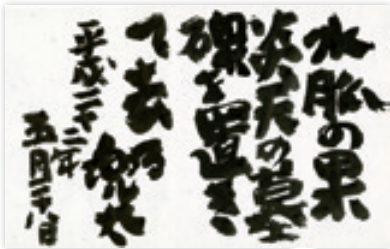 水脈の果
炎天の墓
碑を置き
て去る 兜太
平成二十二年
五月二十八日